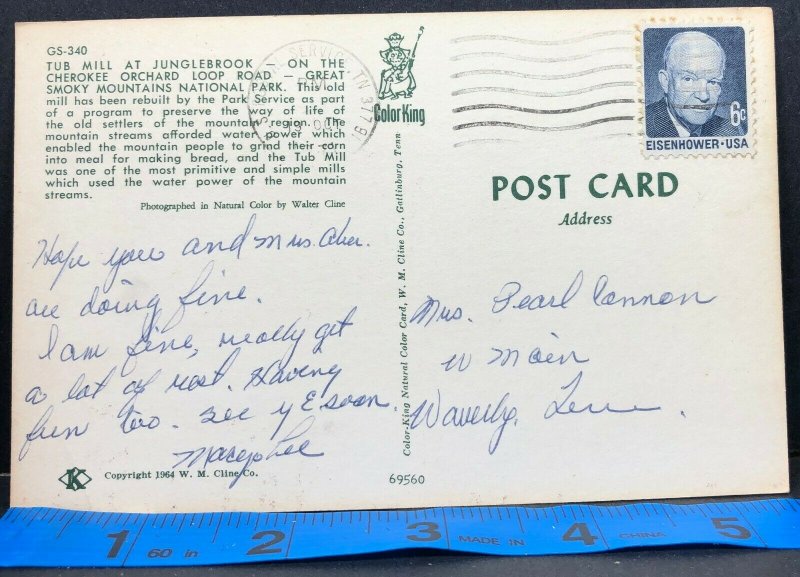 GS-340
TUB MILL AT JUNGLEBROOK — ON THE
CHEROKEE ORCHARD LOOP ROAD — GREAT
SMOKY MOUNTAINS NATIONAL PARK. This old
mill has been rebuilt by the Park Service as part
of a program to preserve the way of life of
the old settlers of the mountain region. The
mountain streams afforded water power which
enabled the mountain people to grind their corn
into meal for making bread, and the Tub Mill
was one of the most primitive and simple mills
which used the water power of the mountain
streams.
Photographed in Natural Color by Walter Cline
Hope you and Mrs.
are doing fine.
I am fine, really get
a lot of rest. Having
fun too. See y soon.
K Copyright 1964 W. M. Cline Co.
Color King
Color-King Natural Color Card, W. M. Cline Co., Gatlinburg, Tenn
69560
SERVICE, TN 378
6c
EISENHOWER·USA
POST CARD
Address
Mrs. Pearl Cannon
W Main
Waverly, Tenn.
1 60 in 2 3 MADE IN 4 CHINA 5